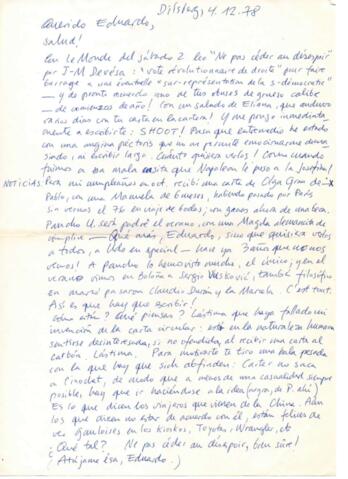 Dilsberg, 4.12.78
Querido Eduardo,
salud!
En Le Monde del sábado 2 leo "Ne pas céder au désespoir"
por J-M Devésa: "vote révolutionnaire de droite" pour faire
barrage a une éventuelle "sur-représentation de la s-démocratie"
— y de pronto acuerdo uno de tus obuses de grueso calibre
— de comienzos de año! Con un salud de Eliana, que anduvo
varios días con tu carta en la cartera! Y me pongo inmediata
mente a escribirte: SHOOT! Pasa que entremedio he estado
con una angina péctoris que no me permite emocionarme dema
siado, ni escribir largo. Cuánto quisiera verlos! Como cuando
fuimos a esa mala casita que Napoleon le puso a la Josefina!
NOTICIAS: Para mi cumpleaños en oct. recibí una carta de Olga Gram de
Pablo, con una Manuela de 6 meses, habiendo pasado por París
sin vernos el 76 en viaje de bodas; con ganas ahora de una beca.
Pancho U. será padre el verano, con una Magda alemancita de
cómplice — Qué más, Eduardo, sino que quisiera verlos
a todos, a Udo en special — hace ya 3 años que no nos
vemos! A Pancho lo hemos visto mucho, el único; y en el
verano vimos en Boloña a Sergio Vuskovic, también filósofo
en marzo pasaron Claudio Durán y la Marcela. C'est tout.
Así es que hay que escribir!
Cómo están? Qué piensan? Lástima que haya fallado mi
invención de la carta circular: está en la naturaleza humana
sentirse desinteresado, si no ofendido, al recibir una carta al
carbón. Lástima. Para motivarte te tiro una bala pesada
con la que hay que sich abfinden: Carter no saca
a Pinochet, de modo que a menos de una casualidad siempre
posible, hay que ir haciéndose a la idea (negra, de P. ahí)
Es lo que dicen los viajeros que vienen de la China. Aún
los que dicen no estar de acuerdo con él, están felices de
ver Gauloises en los kioskos, Toyotas, Wrangler, etc
¿Qué tal? Ne pas céder au désespoir, bien sûre!
(Atájame ésa, Eduardo.)